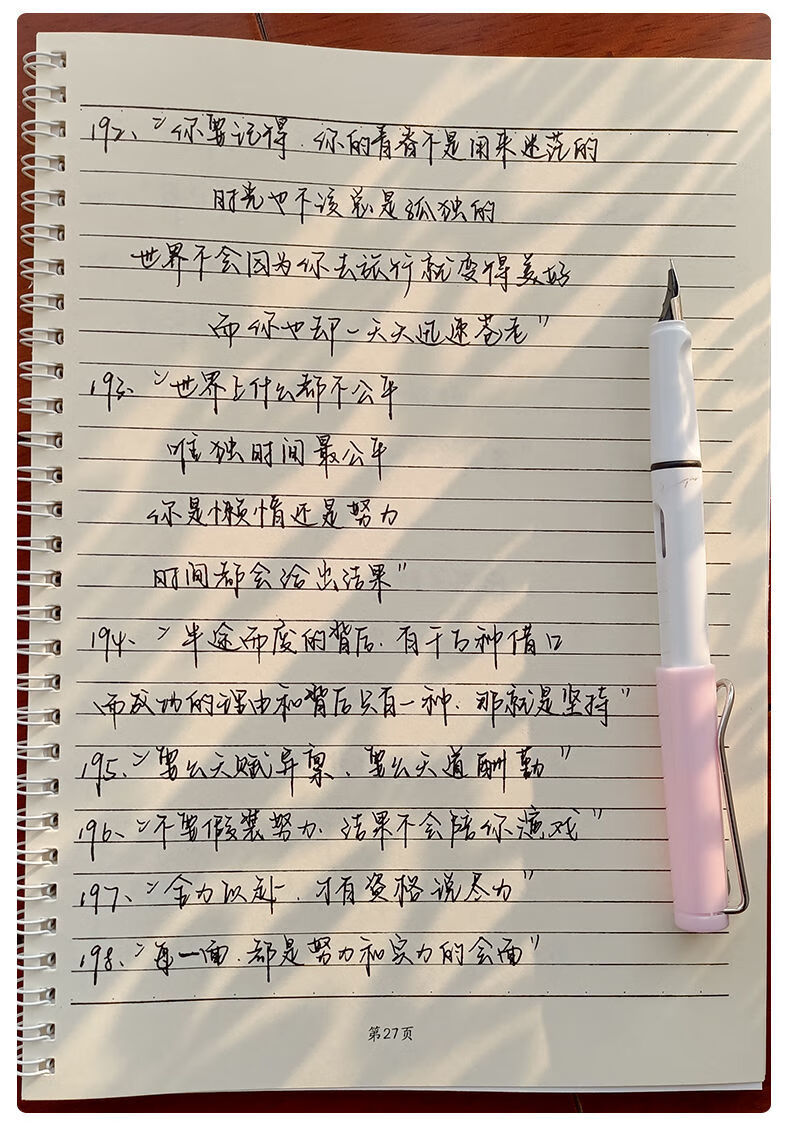 192、“你要记得，你的青春不是用来迷茫的
时光也不该总是孤独的
世界不会因为你去旅行就变得美好
而你也却一天天迅速苍老”
193、“世界上什么都不公平
唯独时间最公平
你是懒惰还是努力
时间都会给出结果”
194、“半途而废的背后，有千百种借口
而成功的理由和背后只有一种，那就是坚持”
195、“要么天赋异禀，要么天道酬勤”
196、“不要假装努力，结果不会陪你演戏”
197、“全力以赴，才有资格说尽力”
198、“每一面，都是努力和实力的会面”
第27页